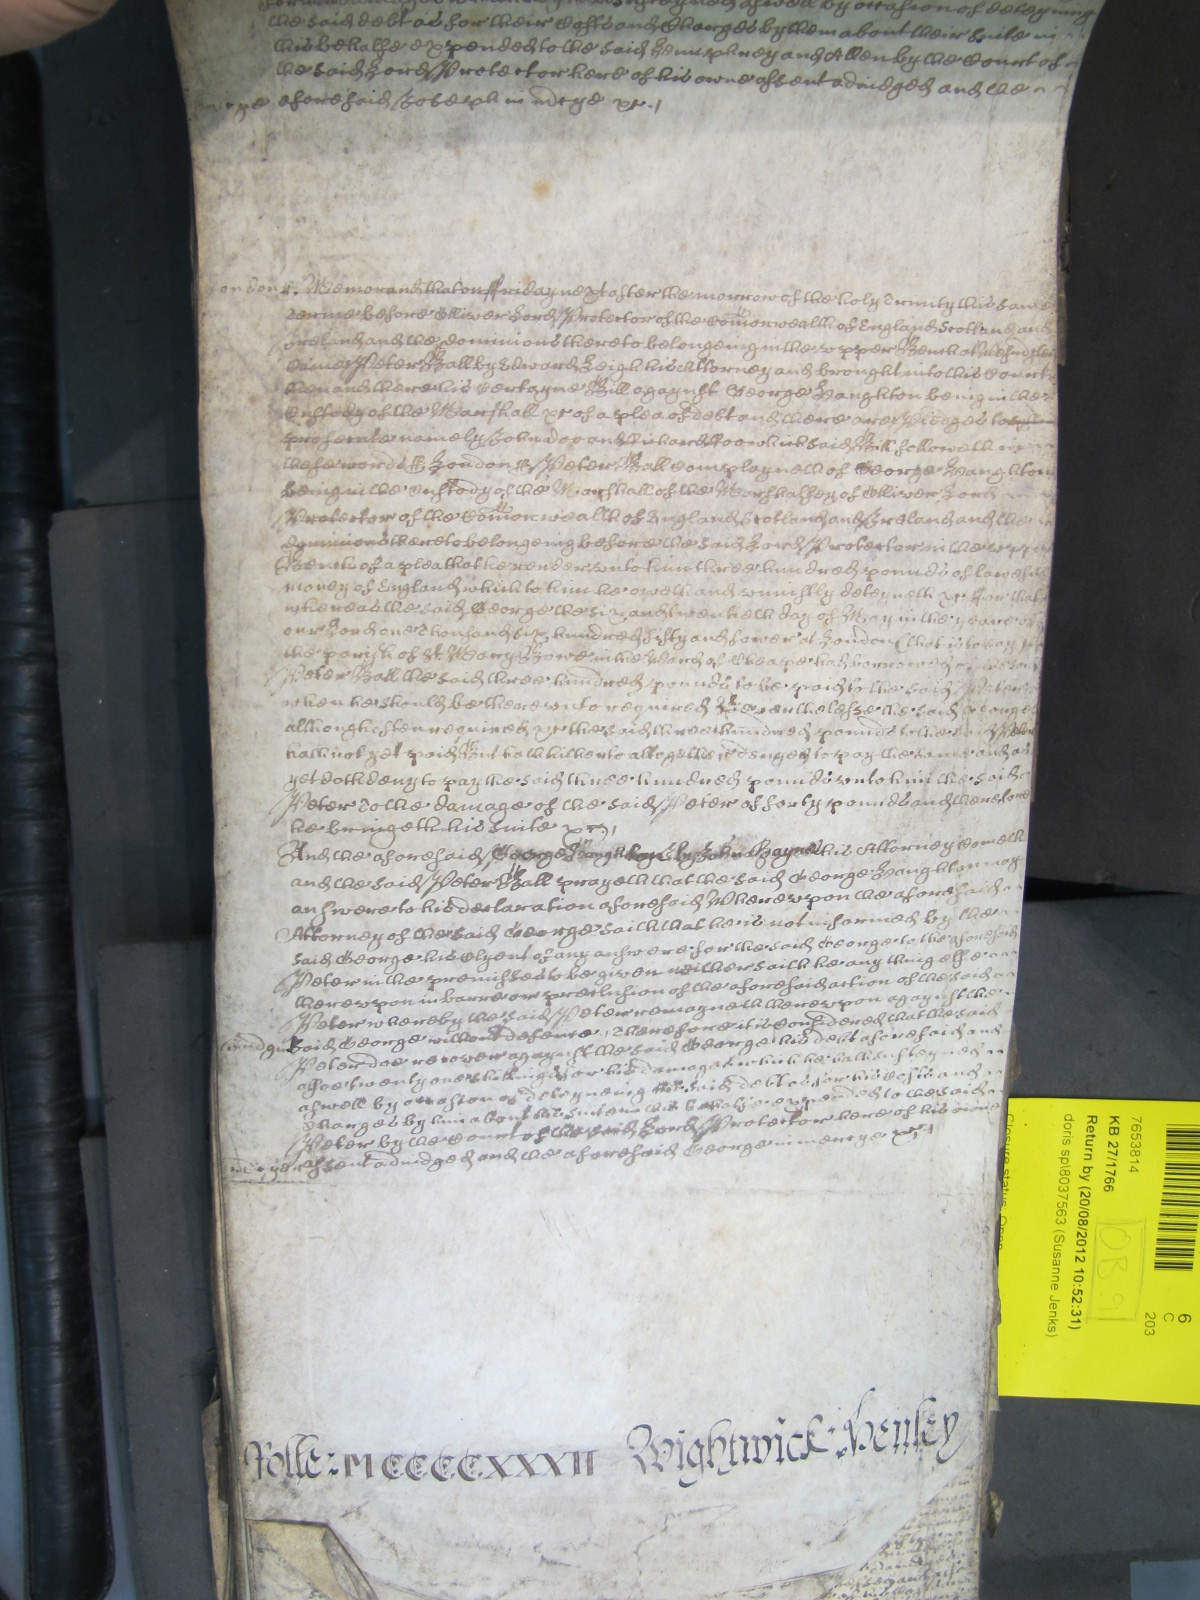 the said debt as for their Costs and Charges by them about their Suite in
his behalfe expended to the said Humphrey and Allen by the Court of
the said Lord Protector here of his owne assent adiudged and the
aforesaid Joseph in mercye &c
London ss. Memorand that on ffriday next after the morrow of the holy Trinity this same
terme before Olliver Lord Protector of the Comonwealth of England Scotland and
Ireland and the dominions thereto belongeing in the upper Bench at Westminster
Came Peter Ball by Edward Leigh his Attorney and brought into the Court
then and there his certayne Bill agaynst George Langhton being in the
Custody of the Marshall &c of a plea of debt and there are Pledges to
prosecute namely John doo and Richard Roo which said Bill followeth in
these words ss London ss Peter Ball complayneth of George Langhton
being in the custody of the Marshall of the Marshallsey of Olliver Lord
Protector of the Comonwealth of England Scotland and Ireland and the
dominions thereto belongeing before the said Lord Protector in the upper
Bench of a plea that he render unto him three hundred pounds of lawfull
money of England which to him he oweth and uniustly deteyneth &c ffor that
whereas the said George the six and twentieth day of May in the yeare of
our Lord one Thousand six hundred fifty and fower at London (that is to say in
the parish of St Mary Bowe in the Ward of Cheape had borrowed of the said
Peter Ball the said three hundred pounds to be paid to the said Peter
when he should be thereunto required Neverthelesse the said George
although often required &c the said three hundred pounds to the said Peter
hath not yet paid But hath hitherto altogether denyed to pay the same and as
yet doth deny to pay the said three hundred pounds unto him the said
Peter To the damage of the said Peter of forty pounds and therefore
he bringeth his suite &c
And the aforesaid George Langhton by John Bayned his Attorney Cometh
and the said Peter Ball prayeth that the said George Langhton may
answere to his declaration aforesaid Whereupon the aforesaid
Attorney of the said George saith that he is not informed by the
said George his Clyent of any answere for the said George to the aforesaid
Peter in the premisses to be given neither saith he any thing else
thereupon in barre or preclusion of the aforesaid action of the said
Peter whereby the said Peter remayneth thereupon agaynst the
said George without defence, Therefore it is considered that the said
Peter doe recover agaynst the said George his debt aforesaid and
also twenty one shillings for his damages which he hath susteyned
aswell by occasion of deteyneing the said debt as for his Costs and
Charges by him about his suite in this behalfe expended to the said
Peter by the Court of the said Lord Protector here of his owne
assent adiudged and the aforesaid George in mercye &c
Rolle: MCCCCXXXII Wightwick: Henley
7653814
KB 27/1766
Return by (20/08/2012 10:52:31)
doris sp\8037563 (Susanne Jenks)
Closure status: Open
6
C
203